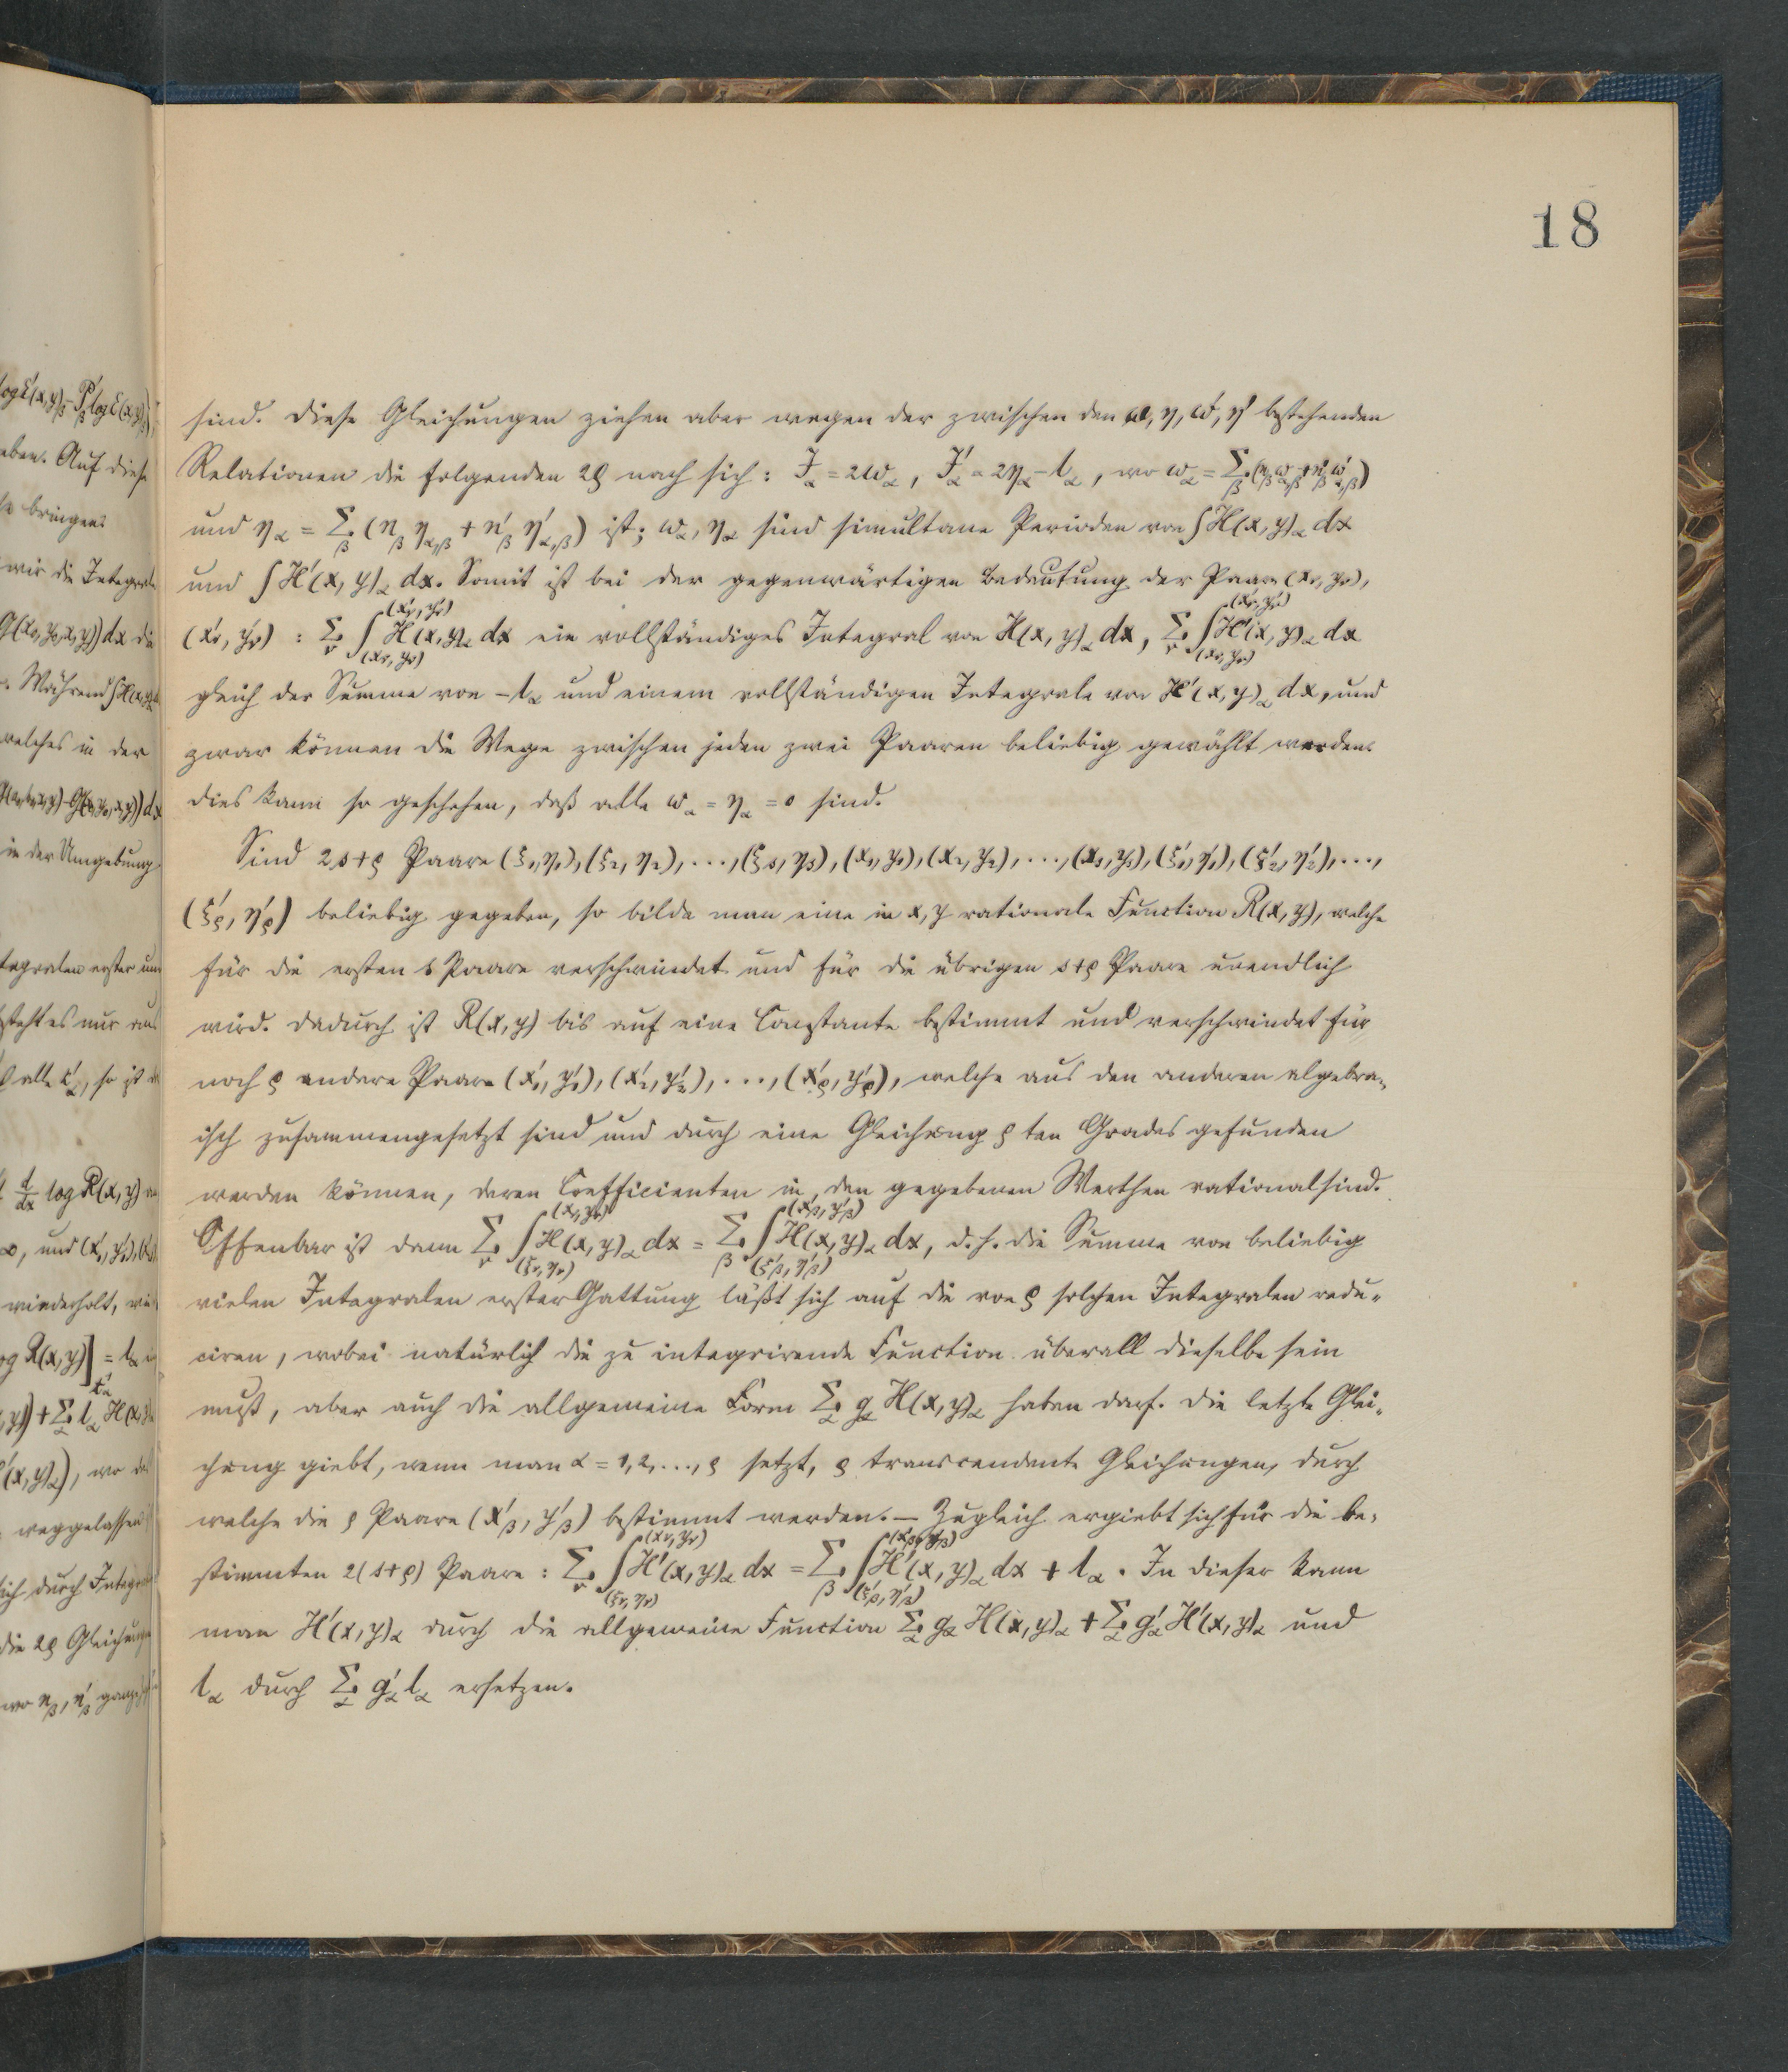 18
sind. Diese Gleichungen ziehen aber wegen der zwischen den ω, η, ω', η' bestehenden
Relationen die folgenden 2ϱ nach sich: J_α = 2ω_α, J'_α = 2η_α - l_α, wo ω_α = Σ_β (n_β ω_{α,β} + n'_β ω'_{α,β})
und η_α = Σ_β (n_β η_{α,β} + n'_β η'_{α,β}) ist; ω_α, η_α sind simultane Perioden von ∫H(x, y)_α dx
und ∫H'(x, y)_α dx. Somit ist bei der gegenwärtigen Bedeutung der Paare (x_ν, y_ν),
(x'_ν, y'_ν) : Σ_ν ∫_{(x_ν, y_ν)}^{(x'_ν, y'_ν)} H(x, y)_α dx ein vollständiges Integral von H(x, y)_α dx, Σ_ν ∫_{(x_ν, y_ν)}^{(x'_ν, y'_ν)} H'(x, y)_α dx
gleich der Summe von - l_α und einem vollständigen Integrale von H'(x, y)_α dx, und
zwar können die Wege zwischen jeden zwei Paaren beliebig gewählt werden.
Dies kann so geschehen, daß alle ω_α = η_α = 0 sind.
Sind 2s+ϱ Paare (ξ_1, η_1), (ξ_2, η_2), ..., (ξ_s, η_s), (x_1, y_1), (x_2, y_2), ..., (x_s, y_s), (ξ'_1, η'_1), (ξ'_2, η'_2), ...,
(ξ'_ϱ, η'_ϱ) beliebig gegeben, so bilde man eine in x, y rationale Function R(x, y), welche
für die ersten s Paare verschwindet und für die übrigen s+ϱ Paare unendlich
wird. Dadurch ist R(x, y) bis auf eine Constante bestimmt und verschwindet für
noch ϱ andere Paare (x'_1, y'_1), (x'_2, y'_2), ..., (x'_ϱ, y'_ϱ), welche aus den anderen algebra-
isch zusammengesetzt sind und durch eine Gleichung ϱ ten Grades gefunden
werden können, deren Coefficienten in den gegebenen Werthen rational sind.
Offenbar ist dann Σ_ν ∫_{(ξ_ν, η_ν)}^{(x_ν, y_ν)} H(x, y)_α dx = Σ_β ∫_{(ξ'_β, η'_β)}^{(x'_β, y'_β)} H(x, y)_α dx, d. h. die Summe von beliebig
vielen Integralen erster Gattung läßt sich auf die von ϱ solchen Integralen redu-
ciren, wobei natürlich die zu integrirende Function überall dieselbe sein
muß, aber auch die allgemeine Form Σ_α g_α H(x, y)_α haben darf. Die letzte Glei-
chung giebt, wenn man α = 1, 2, ..., ϱ setzt, ϱ transcendente Gleichungen, durch
welche die ϱ Paare (x'_β, y'_β) bestimmt werden. — Zugleich ergiebt sich für die be-
stimmten 2(s+ϱ) Paare : Σ_ν ∫_{(ξ_ν, η_ν)}^{(x_ν, y_ν)} H'(x, y)_α dx = Σ_β ∫_{(ξ'_β, η'_β)}^{(x'_β, y'_β)} H'(x, y)_α dx + l_α. In dieser kann
man H'(x, y)_α durch die allgemeine Function Σ_α g_α H(x, y)_α + Σ_α g'_α H'(x, y)_α und
l_α durch Σ_α g'_α l_α ersetzen.